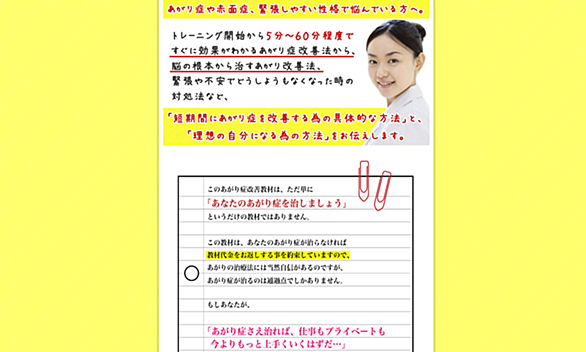 あがり症や赤面症、緊張しやすい性格で悩んでいる方へ。
トレーニング開始から5分〜60分程度で
すぐに効果がわかるあがり症改善法から、
脳の根本から治すあがり改善法、
緊張や不安でどうしようもなくなった時の
対処法など、
「短期間にあがり症を改善する為の具体的な方法」と、
「理想の自分になる為の方法」をお伝えします。
このあがり症改善教材は、ただ単に
「あなたのあがり症を治しましょう」
というだけの教材ではありません。
この教材は、あなたのあがり症が治らなければ
教材代金をお返しする事を約束していますので、
あがりの治療法には当然自信があるのですが、
あがり症が治るのは通過点でしかありません。
もしあなたが、
「あがり症さえ治れば、仕事もプライベートも
今よりもっと上手くいくはずだ…」